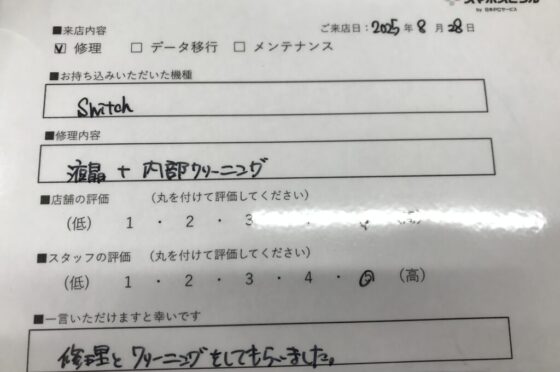 by 日本PCサービス
■来店内容
ご来店日：2025年 8 月 28 日
☑ 修理 □ データ移行 □ メンテナンス
■お持ち込みいただいた機種
Switch
■修理内容
液晶 + 内部クリーニング
■店舗の評価 （丸を付けて評価してください）
（低） 1 ・ 2 ・ 3 （高）
■スタッフの評価 （丸を付けて評価してください）
（低） 1 ・ 2 ・ 3 ・ 4 ・ 5 （高）
■一言いただけますと幸いです
修理とクリーニングをしてもらいました。